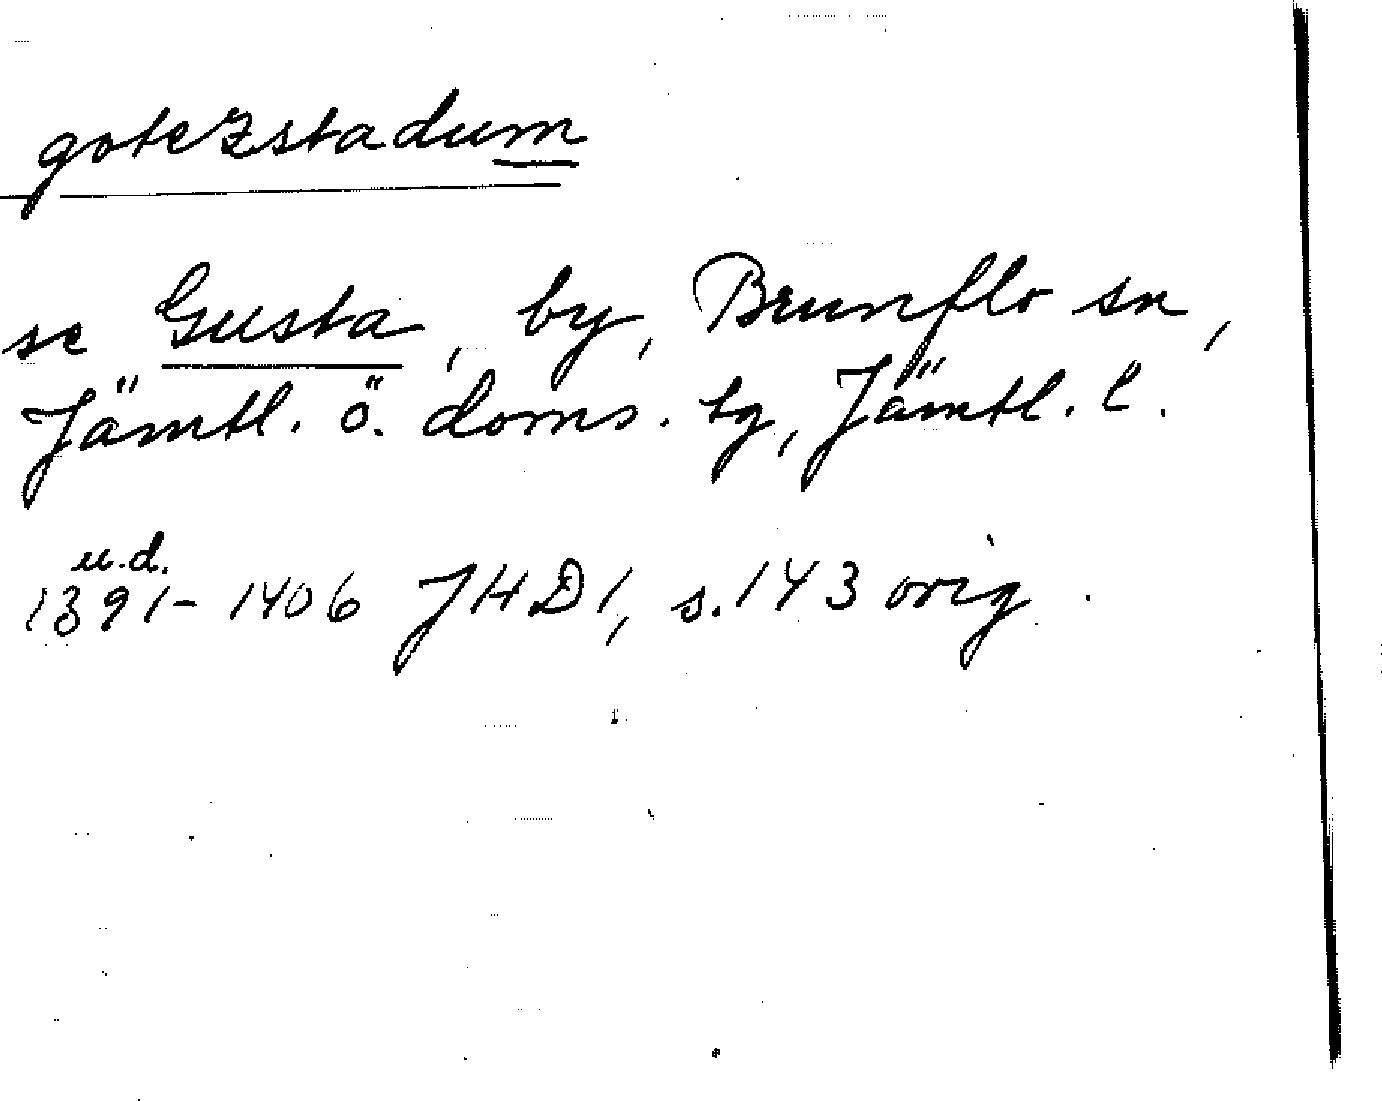 gotezstadum
se Gusta, by, Brunflo sn,
Jämtl. ö. doms. tg, Jämtl. l.
u.d.
1391-1406 JHD1, s.143 orig.